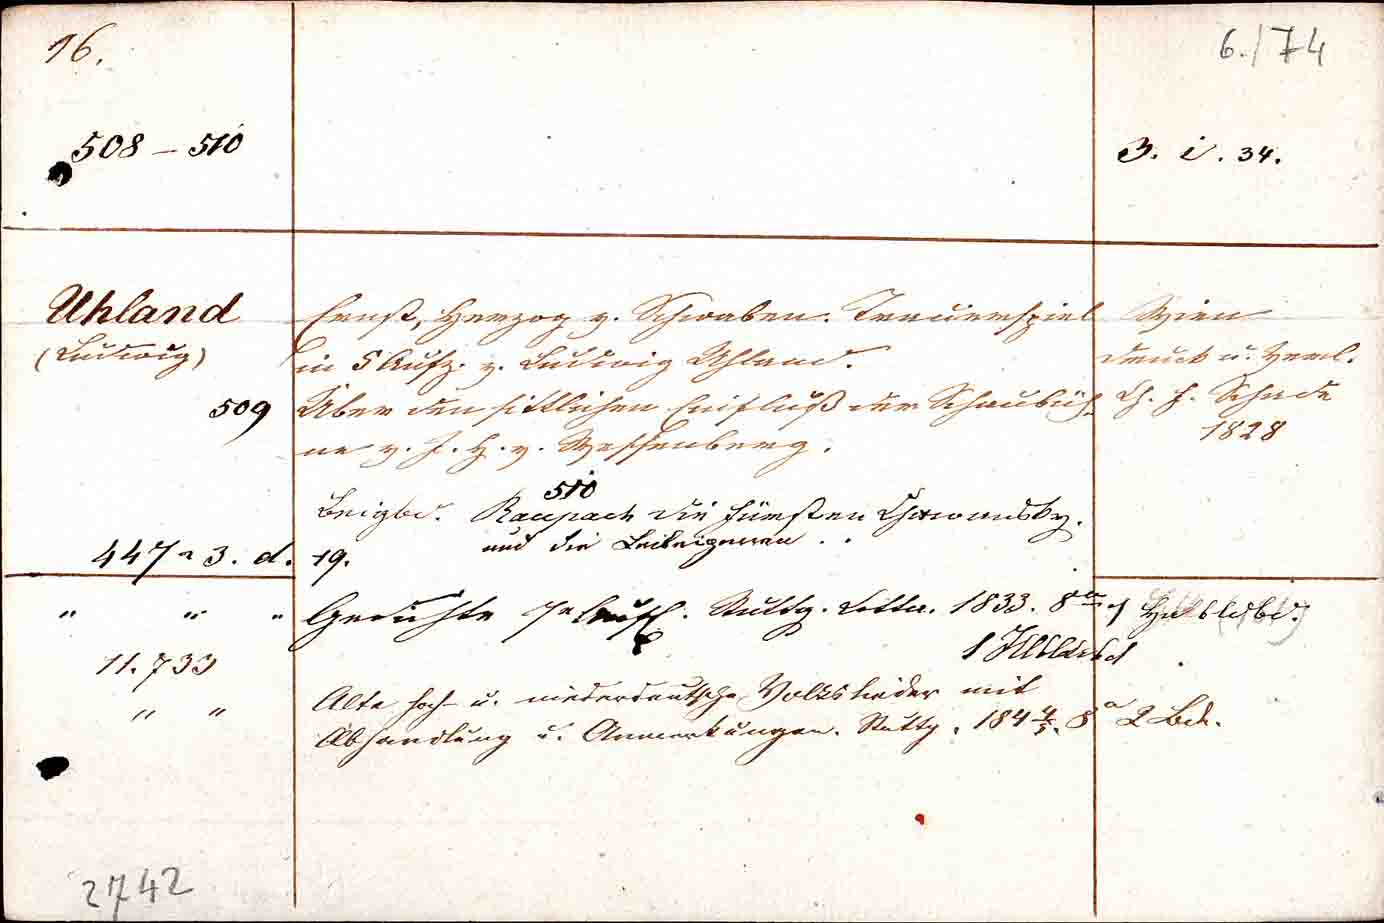 16.
6./74
508 – 510
3. i. 34.
Uhland
(Ludwig)
Ernst, Herzog v. Schwaben. Trauerspiel
in 5 Aufz. v. Ludwig Uhland.
Wien
Druck u. Verl.
509
Über den sittlichen Einfluß der Schaubüh-
ne v. J. H. v. Wessenberg.
Ch. F. Schade
1828
510
Beigbd. Raupach die Fürsten Chawansky.
und die Leibeigenen . .
447 a 3. d. 19.
" " " Gedichte 7e Aufl. Stuttg. Cotta. 1833. 8°
1 Hblldrbd
11.733
" " Alte hoch- u. niederdeutsche Volkslieder mit
Abhandlung u. Anmerkungen. Stuttg. 184 4/5. 8° 2 Bde.
2742